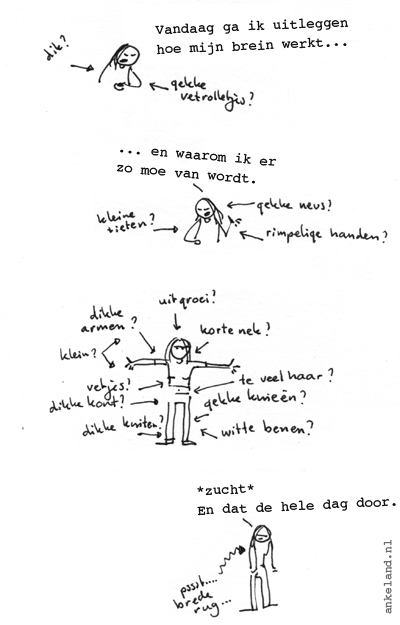 Vandaag ga ik uitleggen
hoe mijn brein werkt...
dik?
gekke
vetrolletjes?
... en waarom ik er
zo moe van wordt.
kleine
tieten?
gekke neus?
rimpelige handen?
uitgroei?
dikke
armen?
korte nek?
klein?
vetjes?
te veel haar?
dikke kont?
gekke knieën?
dikke kuiten?
witte benen?
*zucht*
En dat de hele dag door.
pssst....
brede
rug...
ankeland.nl